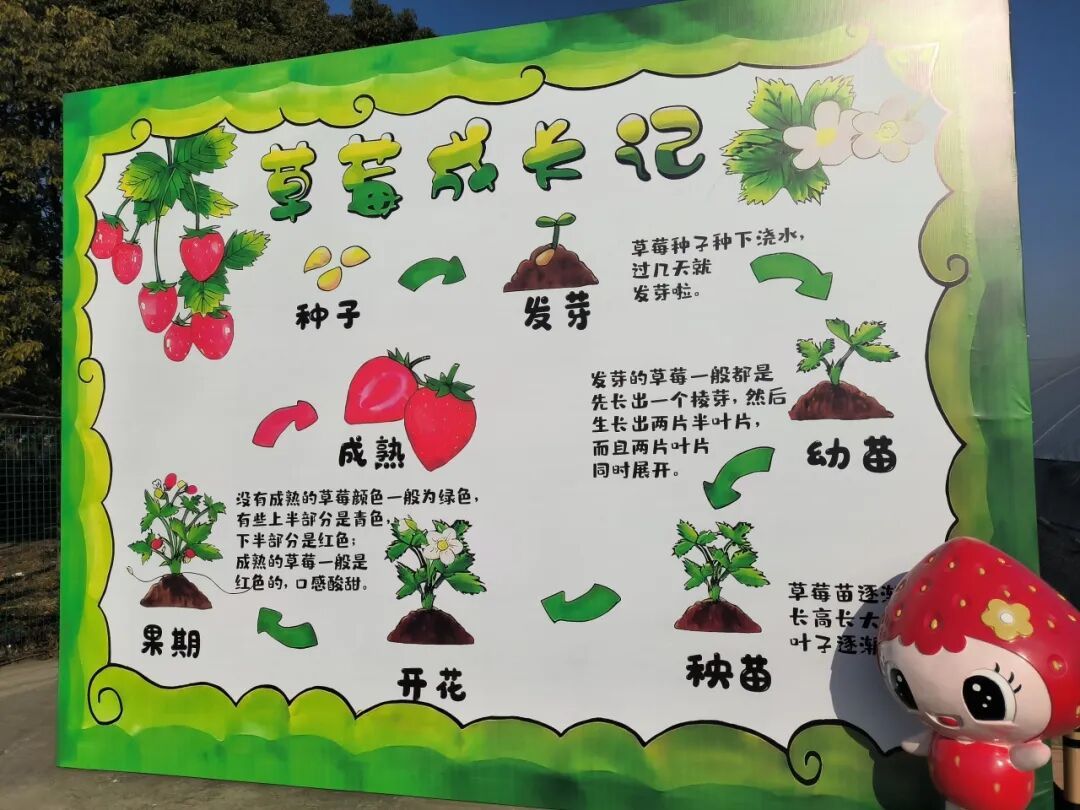 草莓成长记
种子
发芽
草莓种子种下浇水，
过几天就
发芽啦。
发芽的草莓一般都是
先长出一个棱芽，然后
生长出两片半叶片，
而且两片叶片
同时展开。
幼苗
成熟
没有成熟的草莓颜色一般为绿色，
有些上半部分是青色，
下半部分是红色；
成熟的草莓一般是
红色的，口感酸甜。
果期
开花
秧苗
草莓苗逐渐
长高长大
叶子逐渐